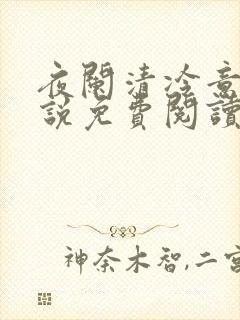 夜阑清冷意
說免費閱讀
神奈木智,二宮